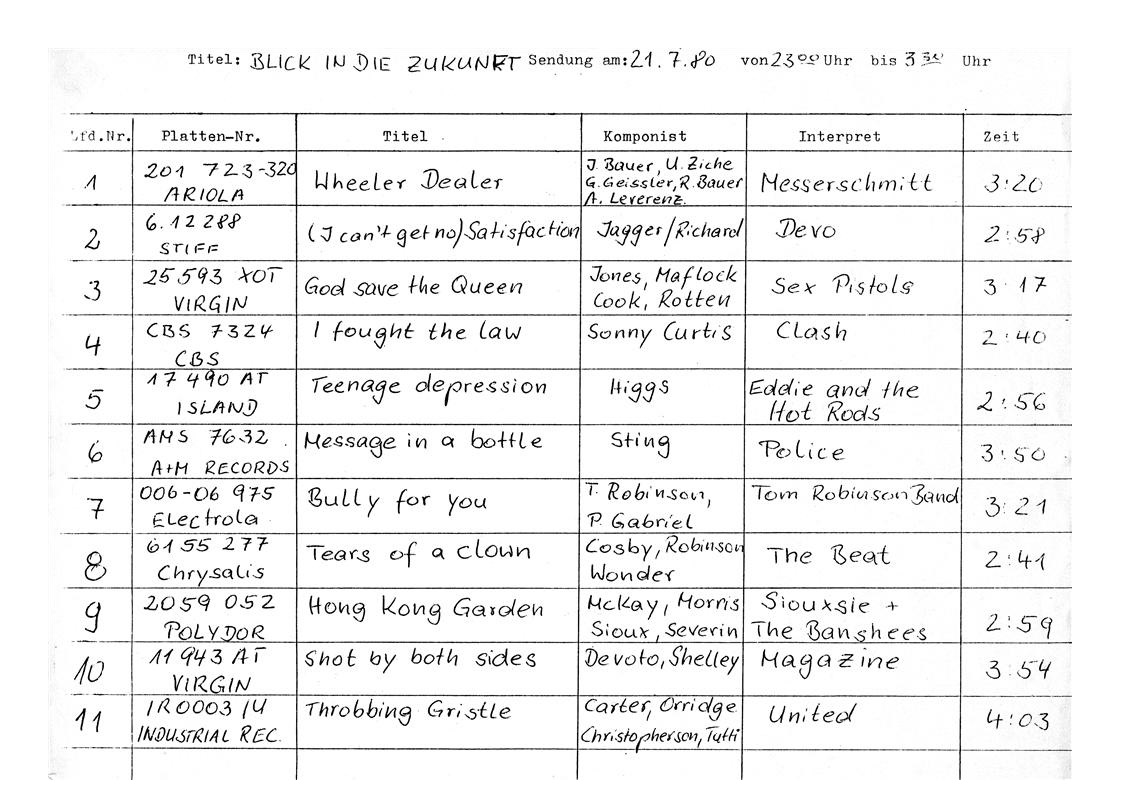 Titel: BLICK IN DIE ZUKUNFT Sendung am: 21.7.80 von 23 00 Uhr bis 3 30 Uhr
Lfd.Nr. Platten-Nr. Titel Komponist Interpret Zeit
1 201 723-320 ARIOLA Wheeler Dealer J. Bauer, U. Ziche G. Geissler, R. Bauer A. Leverenz. Messerschmitt 3:20
2 6.12288 STIFF (I can't get no) Satisfaction Jagger/Richard Devo 2:58
3 25 593 XOT VIRGIN God save the Queen Jones, Maflock Cook, Rotten Sex Pistols 3:17
4 CBS 7324 CBS I fought the law Sonny Curtis Clash 2:40
5 17 490 AT ISLAND Teenage depression Higgs Eddie and the Hot Rods 2:56
6 AMS 7632 A+M RECORDS Message in a bottle Sting Police 3:50
7 006-06 975 Electrola Bully for you T. Robinson, P. Gabriel Tom Robinson Band 3:21
8 6155 277 Chrysalis Tears of a clown Cosby, Robinson Wonder The Beat 2:41
9 2059 052 POLYDOR Hong Kong Garden McKay, Morris Sioux, Severin Siouxsie + The Banshees 2:59
10 11 943 AT VIRGIN Shot by both sides Devoto, Shelley Magazine 3:54
11 IR0003 /U INDUSTRIAL REC. Throbbing Gristle Carter, Orridge Christopherson, Tutti United 4:03